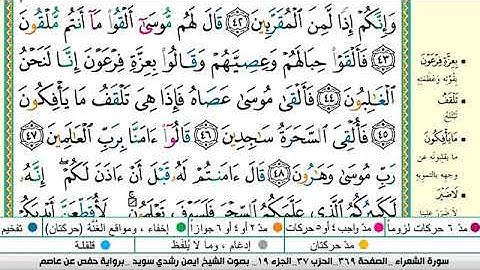 وَإِنَّكُمْ إِذًا لَّمِنَ الْمُقَرَّبِينَ ٤٢ قَالَ لَهُم مُّوسَىٰ أَلْقُوا مَا أَنتُم مُّلْقُونَ
٤٣ فَأَلْقَوْا حِبَالَهُمْ وَعِصِيَّهُمْ وَقَالُوا بِعِزَّةِ فِرْعَوْنَ إِنَّا لَنَحْنُ
الْغَالِبُونَ ٤٤ فَأَلْقَىٰ مُوسَىٰ عَصَاهُ فَإِذَا هِيَ تَلْقَفُ مَا يَأْفِكُونَ
٤٥ فَأُلْقِيَ السَّحَرَةُ سَاجِدِينَ ٤٦ قَالُوا آمَنَّا بِرَبِّ الْعَالَمِينَ ٤٧
رَبِّ مُوسَىٰ وَهَارُونَ ٤٨ قَالَ آمَنتُمْ لَهُ قَبْلَ أَنْ آذَنَ لَكُمْ إِنَّهُ
لَكَبِيرُكُمُ الَّذِي عَلَّمَكُمُ السِّحْرَ فَلَسَوْفَ تَعْلَمُونَ لَأُقَطِّعَنَّ أَيْدِيَكُمْ
بِعِزَّةِ فِرْعَوْنَ
بِقُوَّتِهِ وَعَظَمَتِهِ
تَلْقَفُ
تَبْتَلِعُ
مَا يَأْفِكُونَ
مَا يَقْلِبُونَهُ عَنْ
وَجْهِهِ بِالتَّمْوِيهِ
لَا ضَيْرَ
مدّ ٦ حركات لزوماً
مدّ واجب ٤ أو ٥ حركات
مدّ ٢ أو ٤ أو ٦ جوازاً
إخفاء، ومواقع الغُنَّة (حركتان)
تفخيم
مدّ حركتان
إدغام، وما لا يُلفَظ
قلقلة
سورة الشعراء - الصفحة ٣٦٩ - الحزب ٣٧ - الجزء ١٩ - بصوت الشيخ ايمن رشدي سويد - برواية حفص عن عاصم